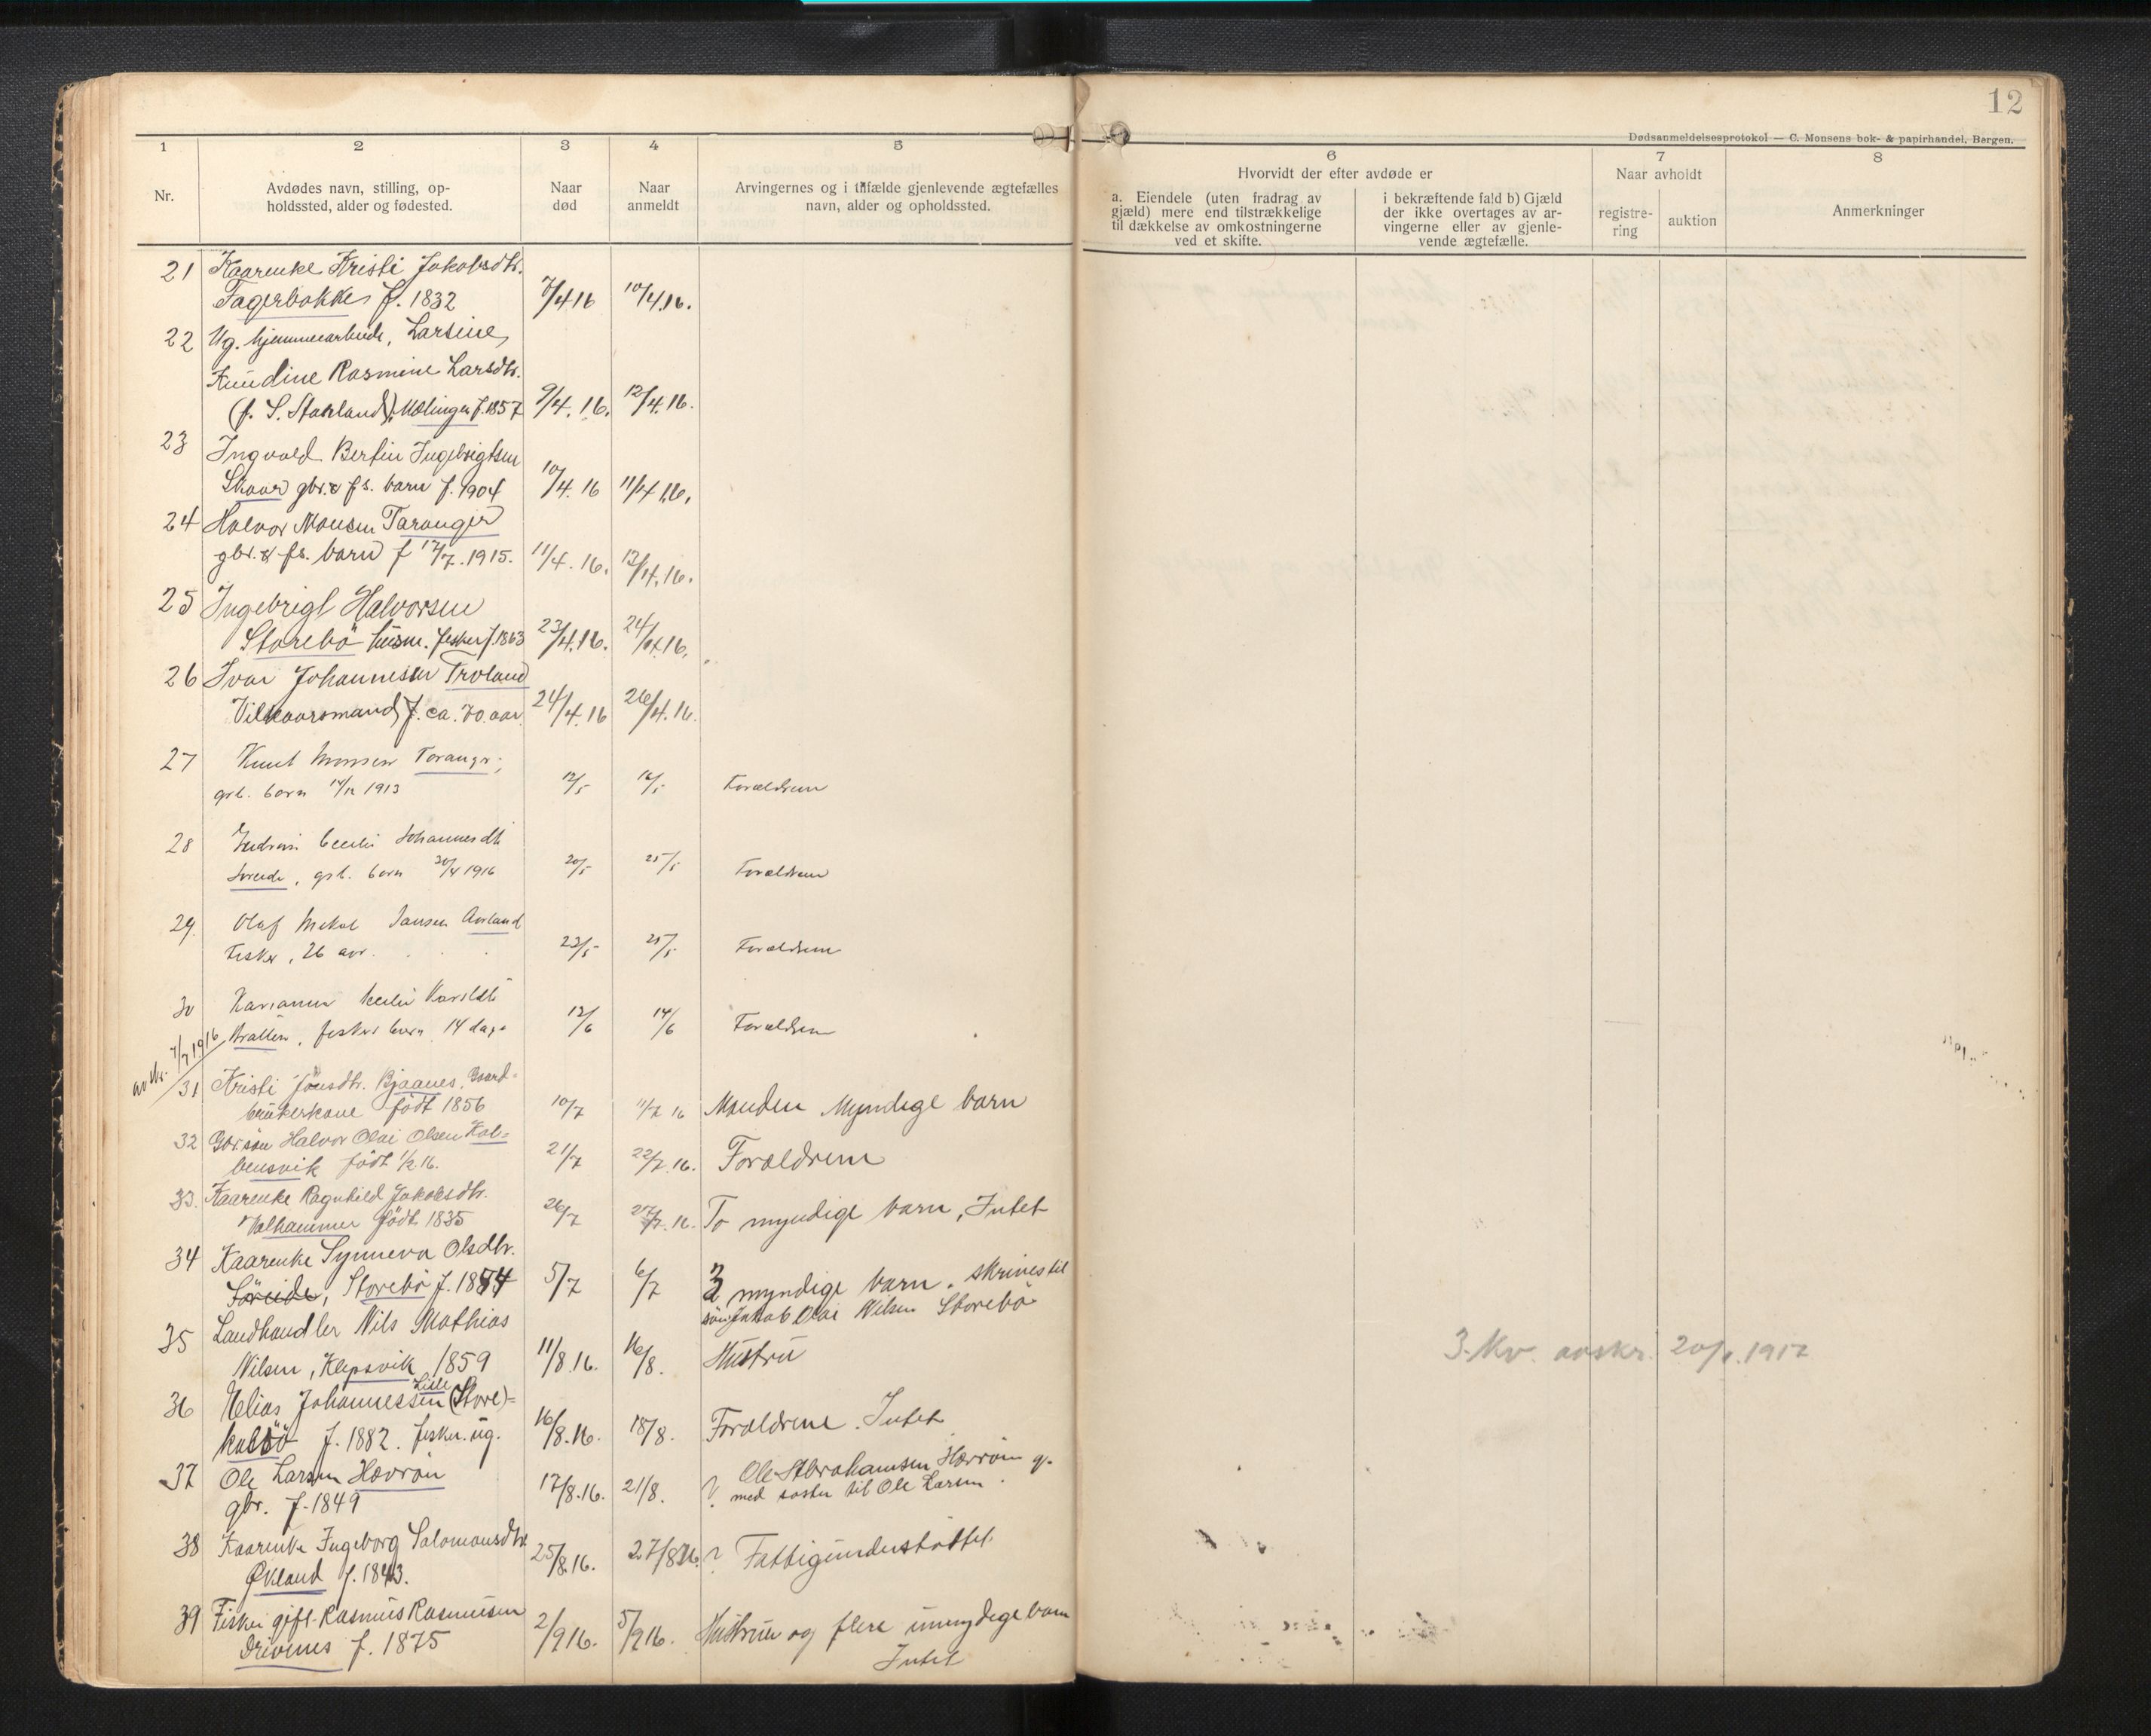 12
Dødsanmeldelsesprotokol — C. Monsens bok- & papirhandel, Bergen.
1 2 3 4 5 6 7 8
Nr.
Avdødes navn, stilling, op-
holdssted, alder og fødested.
Naar
død
Naar
anmeldt
Arvingernes og i tilfælde gjenlevende ægtefælles
navn, alder og opholdssted.
Hvorvidt der efter avdøde er
a. Eiendele (uten fradrag av
gjæld) mere end tilstrækkelige
til dækkelse av omkostningerne
ved et skifte.
i bekræftende fald b) Gjæld
der ikke overtages av ar-
vingerne eller av gjenle-
vende ægtefælle.
Naar avholdt
registre-
ring
auktion
Anmerkninger
21 Kaarenke Kristi Jakobsdtr.
Fagerbakke f. 1832 7/4 16 10/4.16.
22 Ug. hjemmearbeide, Larsine
Knudine Rasmine Larsdtr.
(f. S. Starland) Mælingen f. 1857 9/4. 16. 12/4.16.
23 Ingvald Bertin Ingebrigtsen
Skaar gbr. & fs. barn f. 1904 10/4. 16 11/4 16.
24 Halvor Monsen Taranger
gbr. & fs. barn f 17/7.1915. 11/4. 16. 13/4.16.
25 Ingebrigt Halvorsen
Storebö husm. fisker f. 1863 23/4.16. 24/4.16.
26 Ivar Johannesen Troland
Vilkaarsmand, f. ca. 70 aar 24/4.16 26/4.16.
27 Knut Monsen Toranger,
grb. barn 14/12 1913 12/5 16/5 Forældrene
28 Cecilie Johannesdtr
, grb. barn 30/4 1916 20/5 25/5 Forældrene
29. Olaf Mikal Jansen Avrland
Fisker, 26 aar. 22/5 25/5 Forældrene
30
Bratten, fiskers barn 14 dage 12/6 14/6 Forældrene
avskr. 4/7 1916
31 Kristi Jonsdtr. Bjaanes, Gaard-
brukerkone født 1856 10/7 11/7 16 Manden Myndige barn
32 Gbr. søn Halvor Olai Olsen Kol-
bensvik født 1/2 16. 21/7 22/7.16. Forældrene
33. Kaarenke Ragnhild Jakobsdtr.
Valhammer født 1835 26/7 27/7.16. To myndige barn, Intet
34 Kaarenke Synneva Olsdtr.
Störebö f. 1854 5/7 6/7 3 myndige barn. skrives til
søn Jakob Olai Nilsen Storebö
35 Landhandler Nils Mathias
Nilsen, Klepsvik, 1859 11/8.16. 16/8. Hustru
36 Elias Johannessen Lille (Store)-
kalsö f. 1882. fisker. ug. 16/8.16. 18/8. Forældrene. Intet
37 Ole Larsen Hevrøn
gbr. f. 1849 17/8.16. 21/8. ? Ole Abrahamsen Hevrøn g.
med søster til Ole Larsen.
38 Kaarenke Ingeborg Salomonsdtr.
Økland f. 1843. 25/8.16. 27/8 16. ? Fattigunderstøttet
39 Fisker gift Rasmus Rasmussen
Drivenes f. 1875 2/9 16. 5/9 16. Hustru og flere umyndige barn
Intet
3. Kv. avskr. 20/1.1917